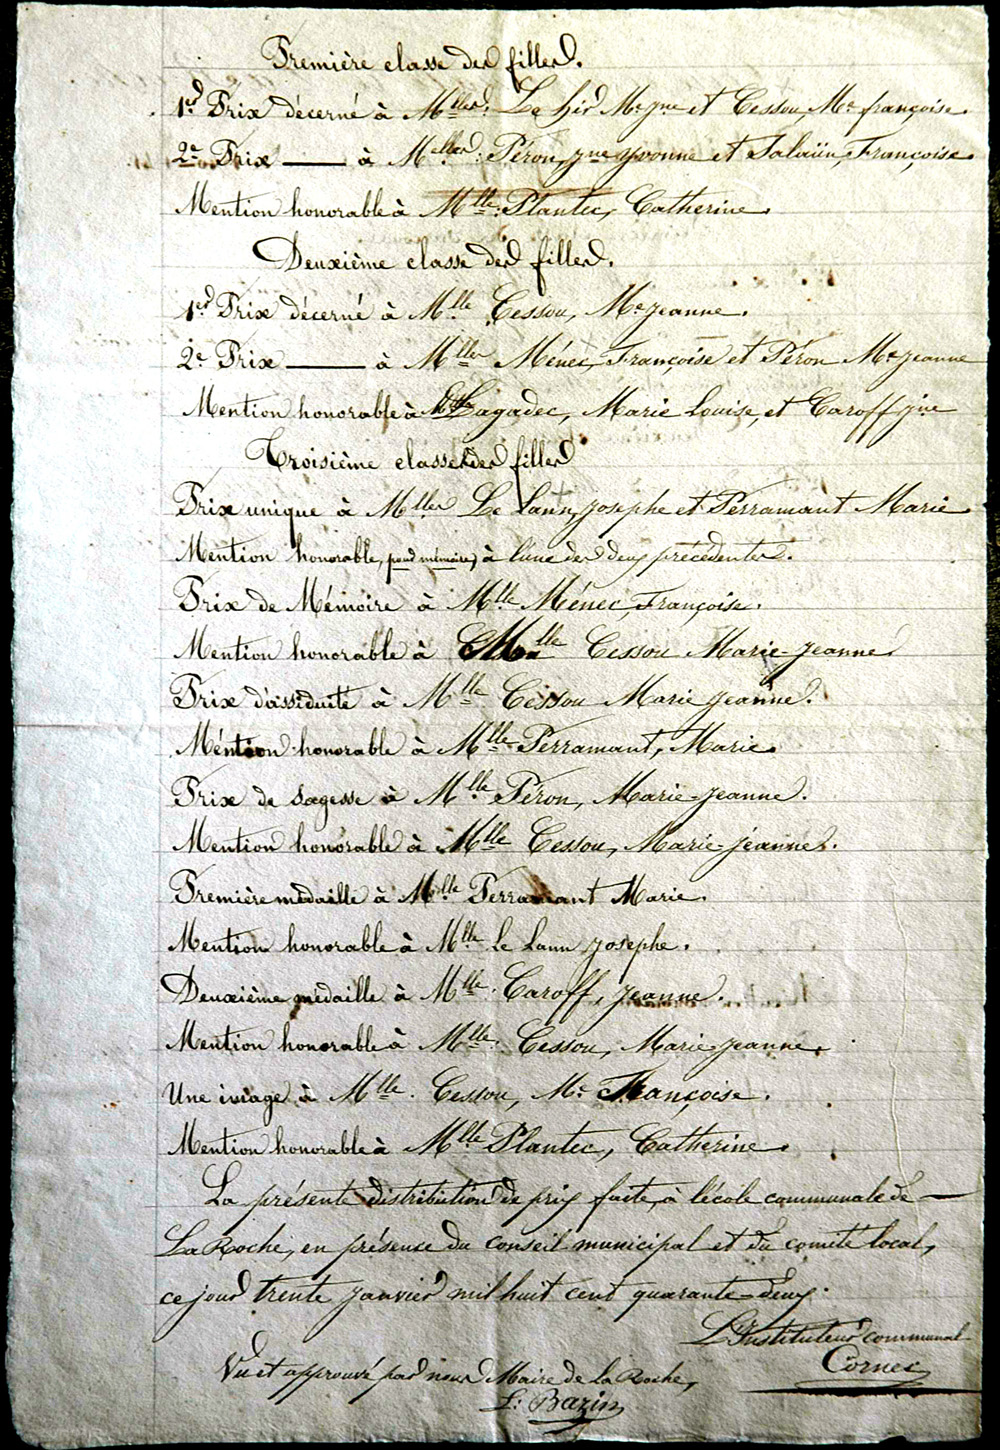 Première classe des filles.
1er Prix décerné à Mlles. Le hir Me jne et Cessou, Me françoise.
2e Prix — à Mlles: Péron, jne yvonne et Salaün, Françoise.
Mention honorable à Mlle: Plantec, Catherine.
Deuxième classe des filles.
1er Prix décerné à Mlle Cessou, Me jeanne.
2e Prix — à Mlles Ménec, Françoise et Péron Me jeanne
Mention honorable à Mlles Lagadec, Marie Louise, et Caroff jne
Troisième classe des filles
Prix unique à Mlles Le Lann, josephe et Perramant Marie
Mention honorable, pour mémoire, à l'une des deux précédentes.
Prix de Mémoire à Mlle Ménec, Françoise.
Mention honorable à Mlle Cessou Marie-jeanne
Prix d'assiduité à Mlle Cessou Marie jeanne.
Méntion honorable à Mlle Perramant, Marie.
Prix de sagesse à Mlle Péron, Marie-jeanne.
Mention honorable à Mlle Cessou, Marie-jeanne.
Première médaille à Mlle Perramant Marie.
Mention honorable à Mlle le Lann josephe.
Deuxième médaille à Mlle. Caroff, jeanne.
Mention honorable à Mlle. Cessou, Marie-jeanne.
Une image à Mlle. Cessou, Me Françoise.
Mention honorable à Mlle Plantec, Catherine.
La présente distribution de prix faite, à l'école communale de —
La Roche, en présence du conseil municipal et du comité local,
ce jour trente janvier mil huit cent quarante-deux.
L'Instituteur communal
Cornec
Vu et approuvé par nous Maire de la Roche,
L: Bazin